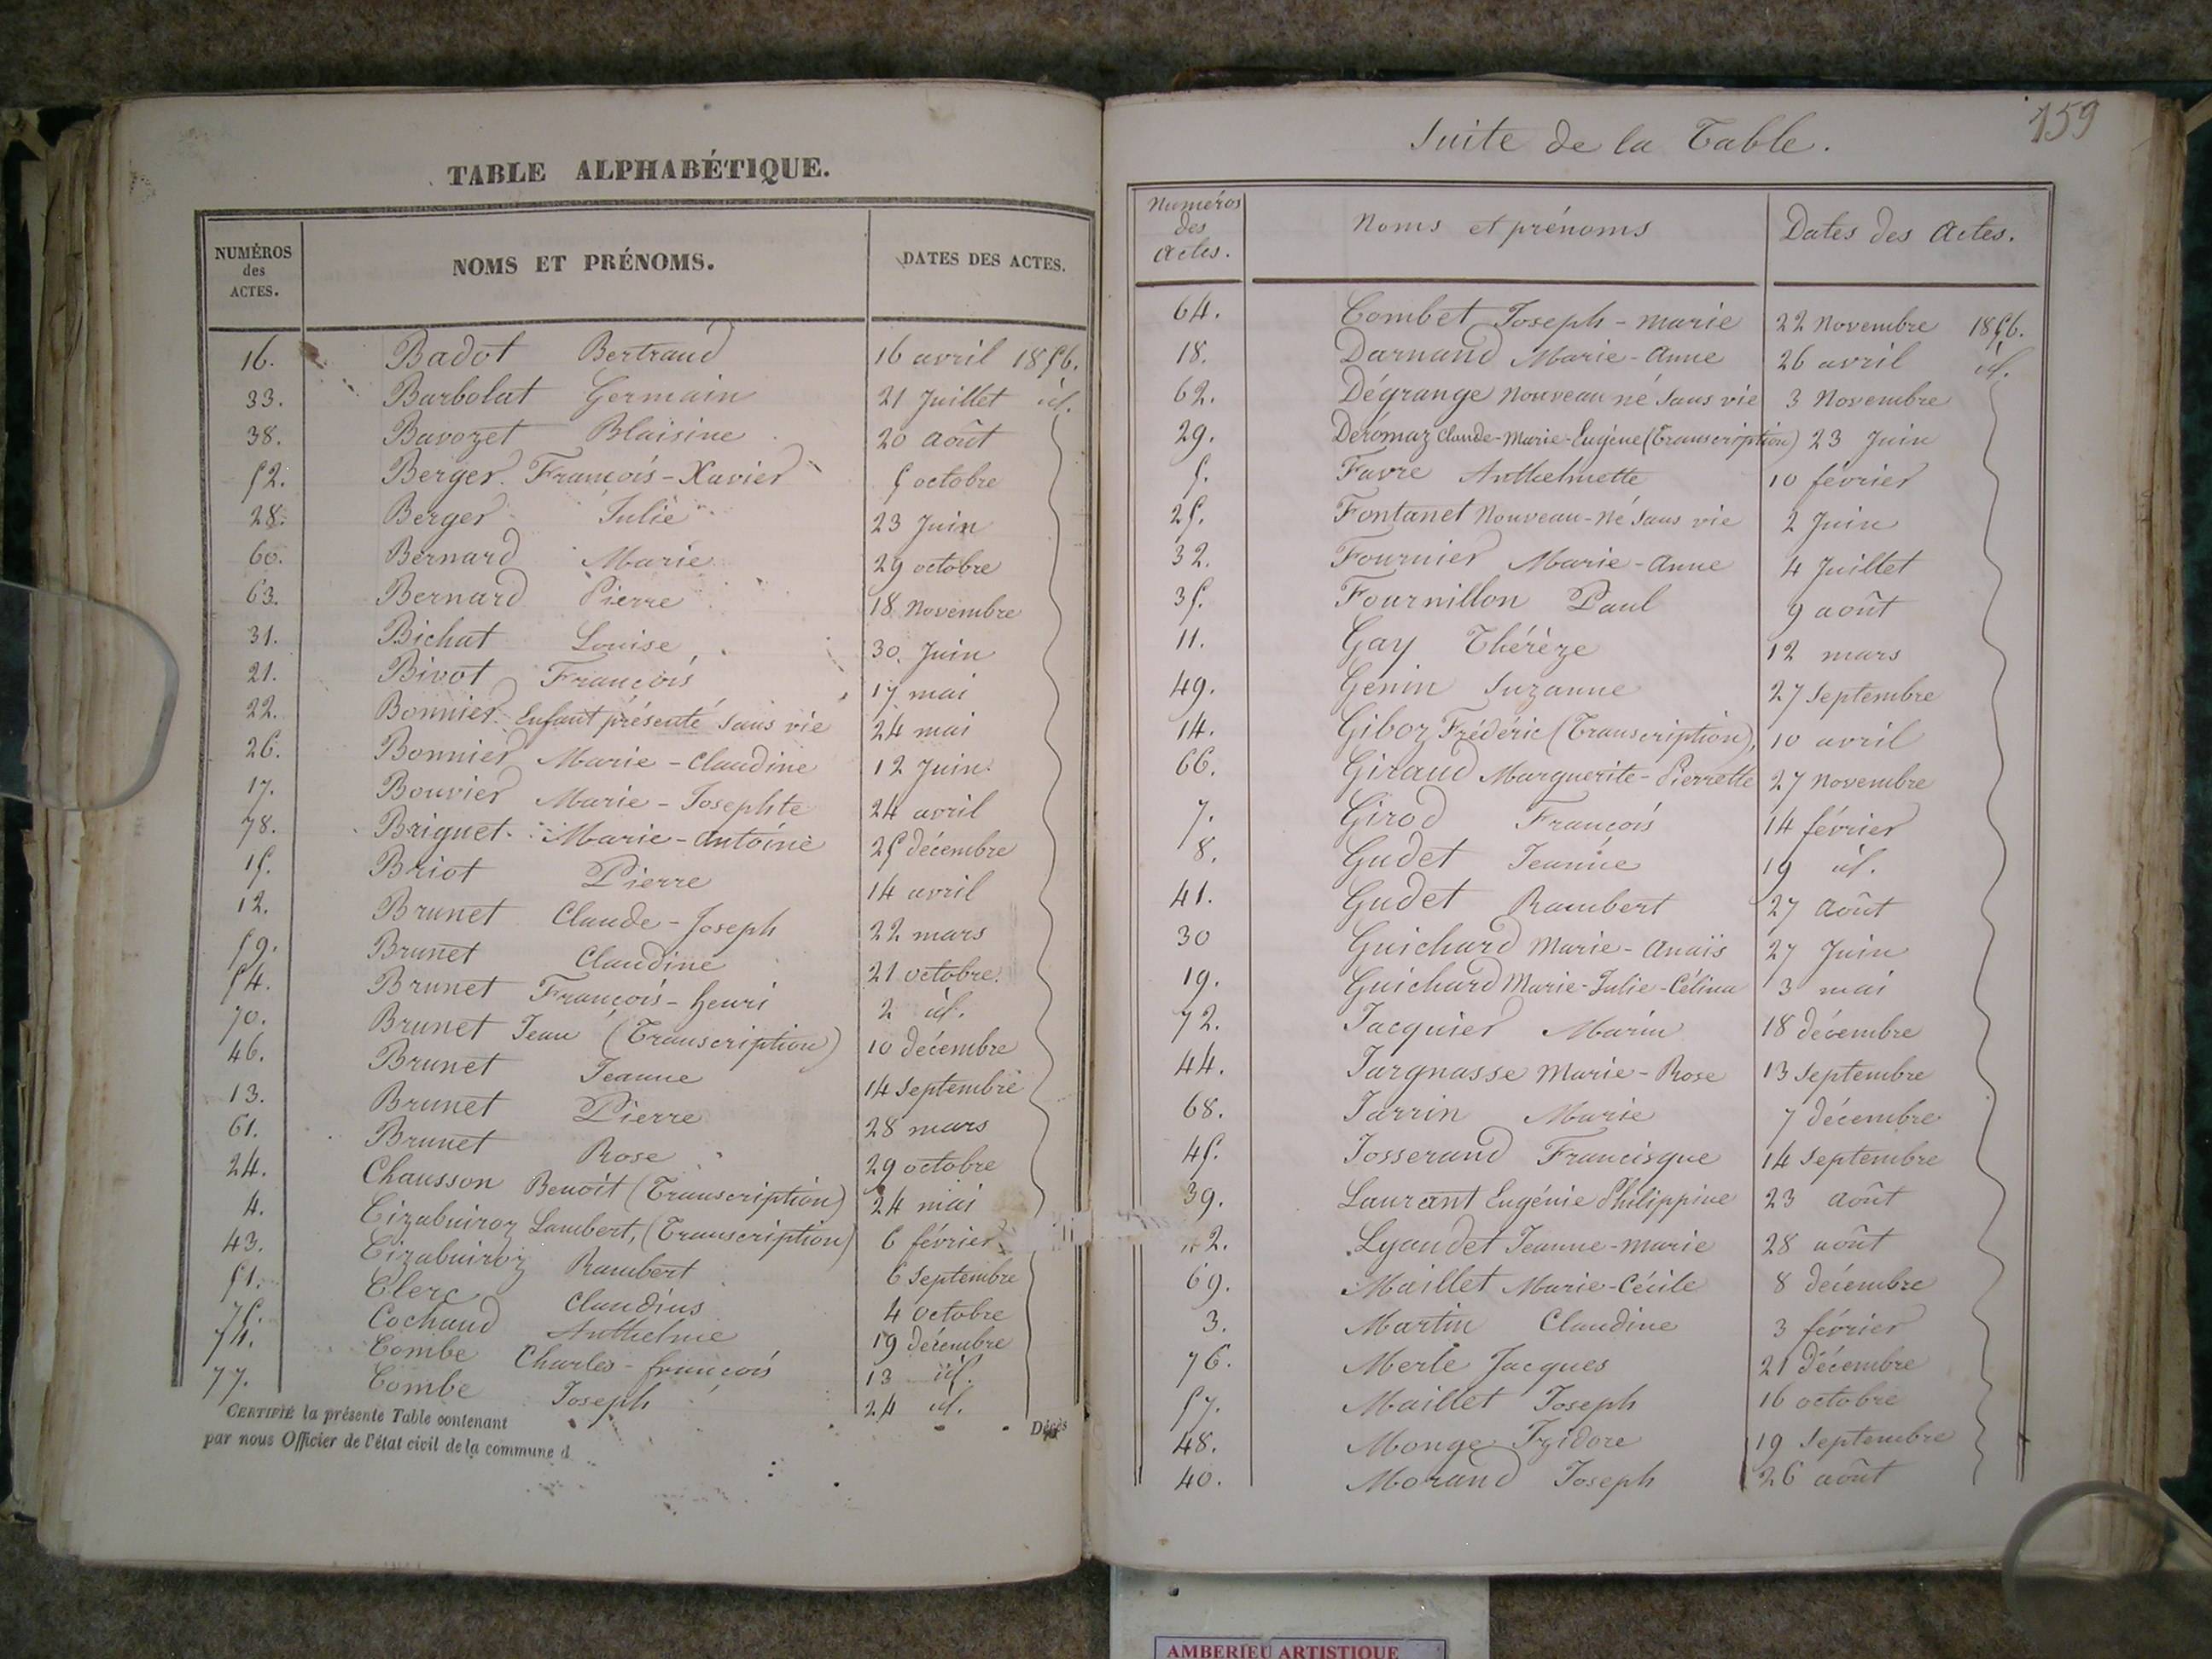 TABLE ALPHABÉTIQUE.
NUMÉROS des ACTES. NOMS ET PRÉNOMS. DATES DES ACTES.
16. Badot Bertrand 16 avril 1856.
33. Barbolat Germain 21 Juillet id.
38. Bavozet Blaisine 20 août
52. Berger François-Xavier 5 octobre
28. Berger Julie 23 Juin
60. Bernard Marie 29 octobre
63. Bernard Pierre 18 Novembre
31. Bichat Louise 30 Juin
21. Bivot François 17 mai
22. Bonnier Enfant présenté sans vie 24 mai
26. Bonnier Marie-Claudine 12 Juin
17. Bouvier Marie-Josephte 24 avril
78. Briguet Marie-Antoine 25 décembre
15. Briot Pierre 14 avril
12. Brunet Claude-Joseph 22 mars
59. Brunet Claudine 21 octobre
54. Brunet François-henri 2 id.
70. Brunet Jean (Transcription) 10 décembre
46. Brunet Jeanne 14 Septembre
13. Brunet Pierre 28 mars
61. Brunet Rose 29 octobre
24. Chausson Benoît (Transcription) 24 mai
4. Cizabuiroz Lambert, (Transcription) 6 février
43. Cizabuiroz Rambert 6 Septembre
51. Clerc Claudius 4 Octobre
75. Cochaud Anthelme 19 décembre
74. Combe Charles-françois 13 id.
77. Combe Joseph 24 id.
CERTIFIÉ la présente Table contenant Décès
par nous Officier de l'état civil de la commune d
159
Suite de la Table.
Numéros des Actes. Noms et prénoms Dates des Actes.
64. Combet Joseph-marie 22 Novembre 1856.
18. Darnand Marie-Anne 26 avril id.
62. Dégrange Nouveau né sans vie 3 Novembre
29. Deromaz Claude-Marie-Eugène (Transcription) 23 Juin
5. Favre Anthelmette 10 février
25. Fontanet Nouveau-Né sans vie 2 Juin
32. Fournier Marie-Anne 4 Juillet
35. Fournillon Paul 9 août
11. Gay Thérèze 12 mars
49. Genin Suzanne 27 Septembre
14. Giboz Frédéric (Transcription), 10 avril
66. Giraud Marguerite-Pierrette 27 Novembre
7. Girod François 14 février
8. Gudet Jeanne 19 id.
41. Gudet Rambert 27 Août
30 Guichard Marie-Anaïs 27 Juin
19. Guichard Marie-Julie-Célina 3 mai
72. Jacquier Marin 18 décembre
44. Jargnasse Marie-Rose 13 Septembre
68. Jarrin Marie 7 décembre
45. Josserand Francisque 14 Septembre
39. Laurant Eugénie Philippine 23 août
2. Lyaudet Jeanne-marie 28 août
69. Maillet Marie-Cécile 8 décembre
3. Martin Claudine 3 février
76. Merle Jacques 21 décembre
57. Maillet Joseph 16 octobre
48. Monge Izidore 19 Septembre
40. Morand Joseph 26 août
AMBERIEU ARTISTIQUE